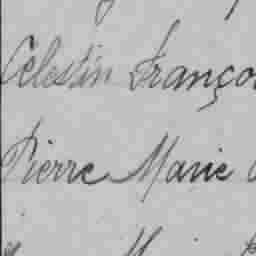 Célestin Franço
Pierre Marie